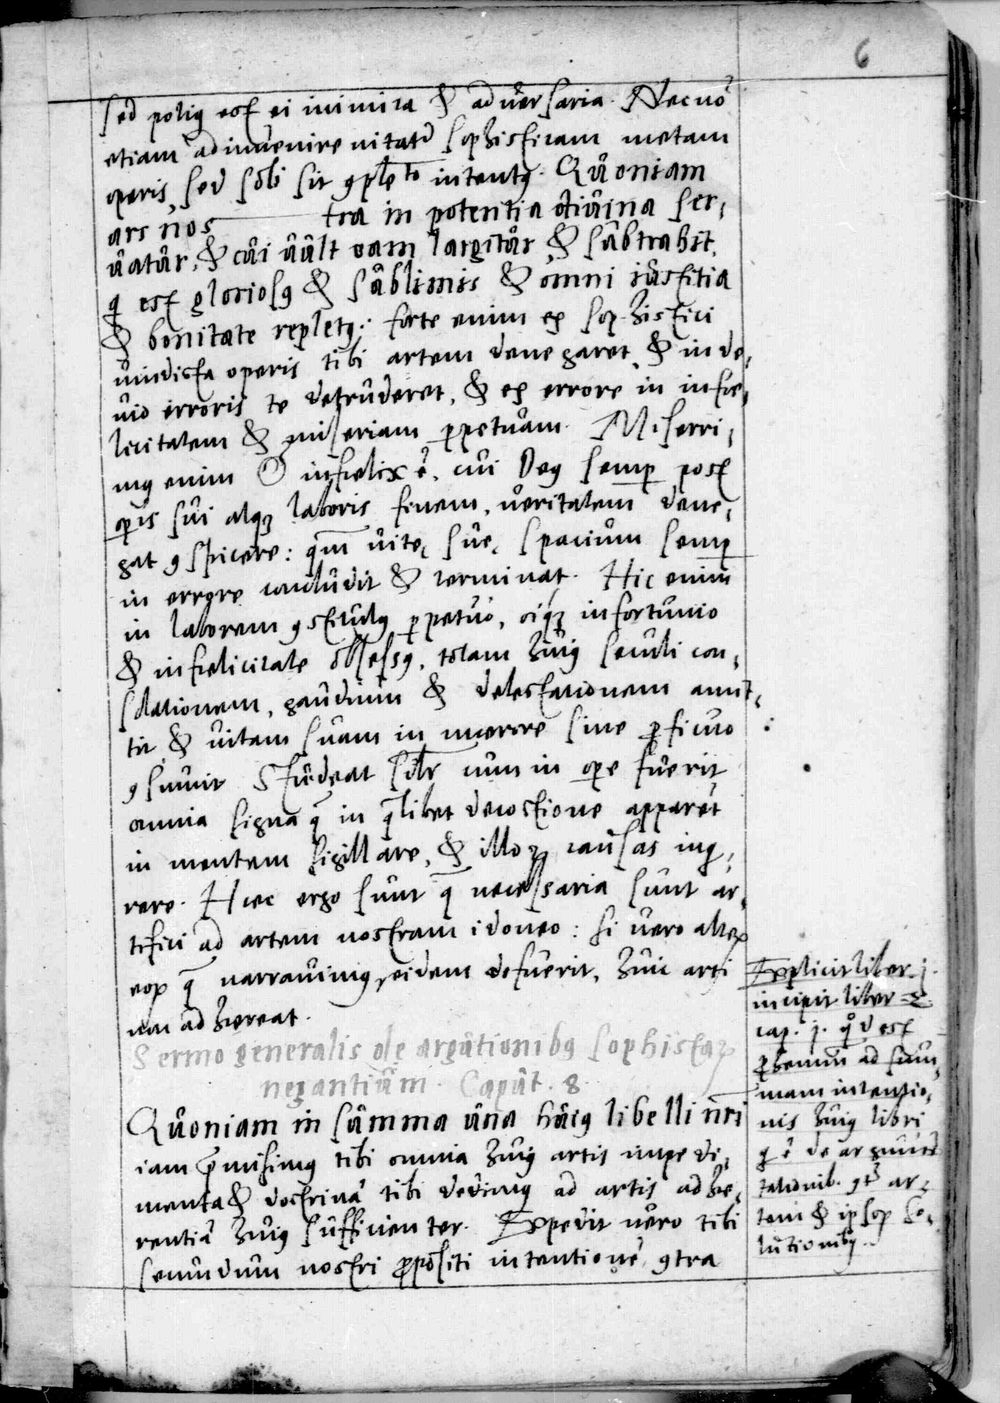 6
sed potiꝰ est ei inimica & adversaria. Nec nõ
etiam adinvenire nitatʳ sophisticam metam
operis, sed soli sit ꝯpleto intentꝰ. Quoniam
ars nos tra in potentia divina ser,
vatur, & cui vult eam largitur & subtrahit,
q̃ est gloriosꝰ & sublimis & omni iustitia
& bonitate repletꝰ: forte enim ex sophistici
vindicta operis tibi artem denegaret & in de,
vio erroris te detruderet, & ex errore in infœ,
licitatem & miseriam ꝑpetuam. Miserri,
mꝰ enim & infœlix ẽ, cui Deꝰ semꝑ post
oꝑis sui atqꝫ laboris finem, veritatem dene,
gat ꝯspicere: qm̃ vitę suę spacium semꝑ
in errore concludit & terminat. Hic enim
in laborem ꝯstitutꝰ ꝑpetuo, oiqꝫ infortunio
& infœlicitate obsessꝰ, totam huiꝰ seculi con,
solationem, gaudium & delectationem amit,
tit & vitam suam in merore sine ꝓficuo
ꝯsumit Studeat similr̃ cum in oꝑe fuerit
omnia signa q̃ in q̃libet decoctione apparẽt
in mentem sigillare, & illoꝝ causas inq̃,
rere. Hæc ergo sunt q̃ necessaria sunt ar,
tifici ad artem nostram idoneo: si vero alteꝝ
eoꝝ q̃ narravimꝰ, eidem defuerit, huic arti
non adhæreat.
Sermo generalis de argutionibꝰ sophistaꝝ
negantium. Caput. 8.
Quoniam in summa una huiꝰ libelli nr̃i
iam p̃misimꝰ tibi omnia huiꝰ artis impedi,
menta & doctrinã tibi dedimꝰ ad artis adhe,
rentiã huiꝰ sufficienter. Expedit vero tibi
secundum nostri ꝓpositi intentionẽ ꝯtra
Explicit liber j.
incipit liber 2.
cap. j. qd̃ est
ꝓhemiũ ad sum,
mam intentio,
nis huiꝰ libri
q̃ ẽ de argumẽ
tationib. ꝯtʳ ar,
tem & ipsoꝝ so,
lutionibꝰ.